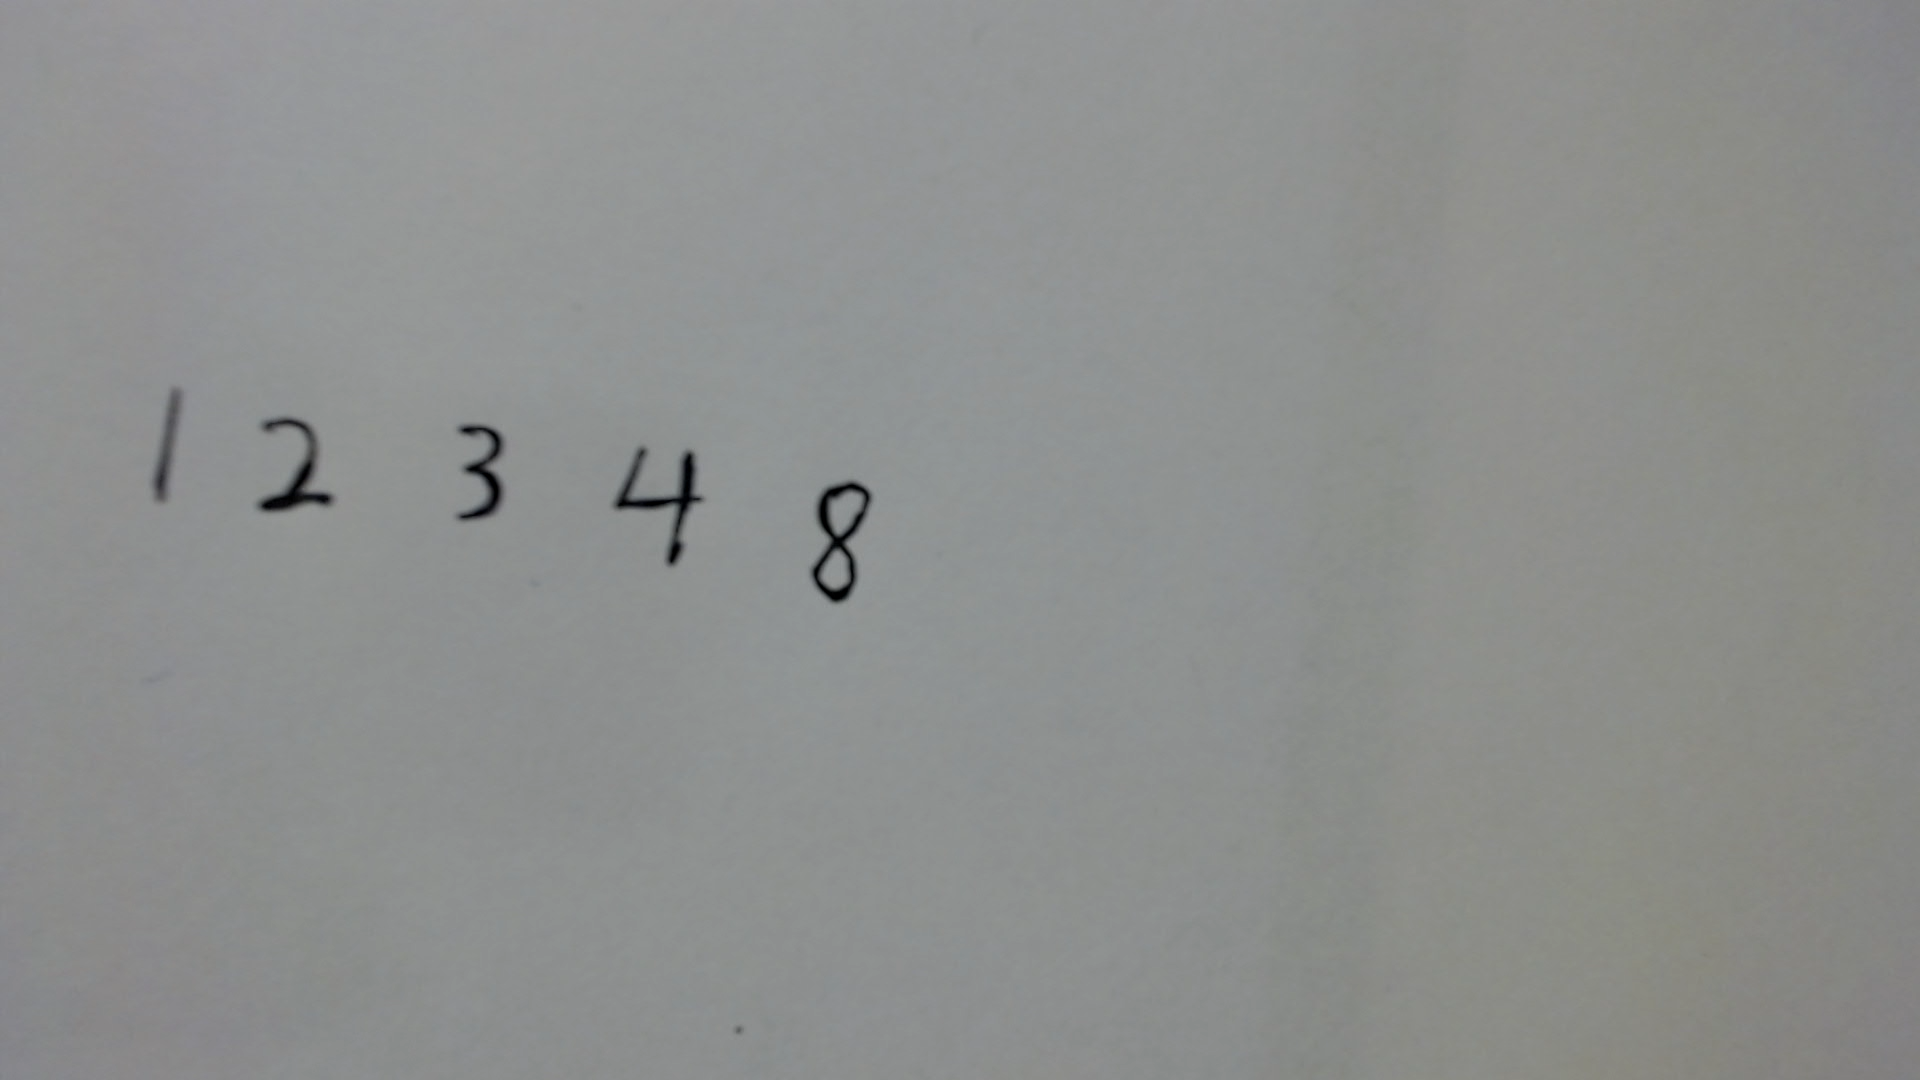 1 2 3 4 8